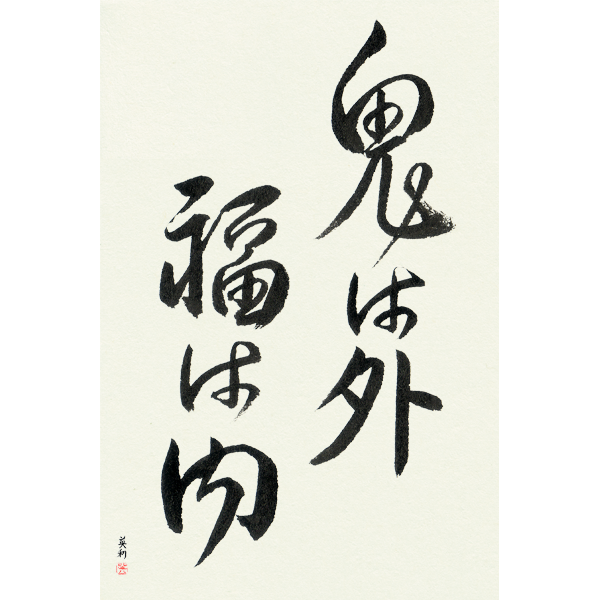 鬼は外
福は内
英利